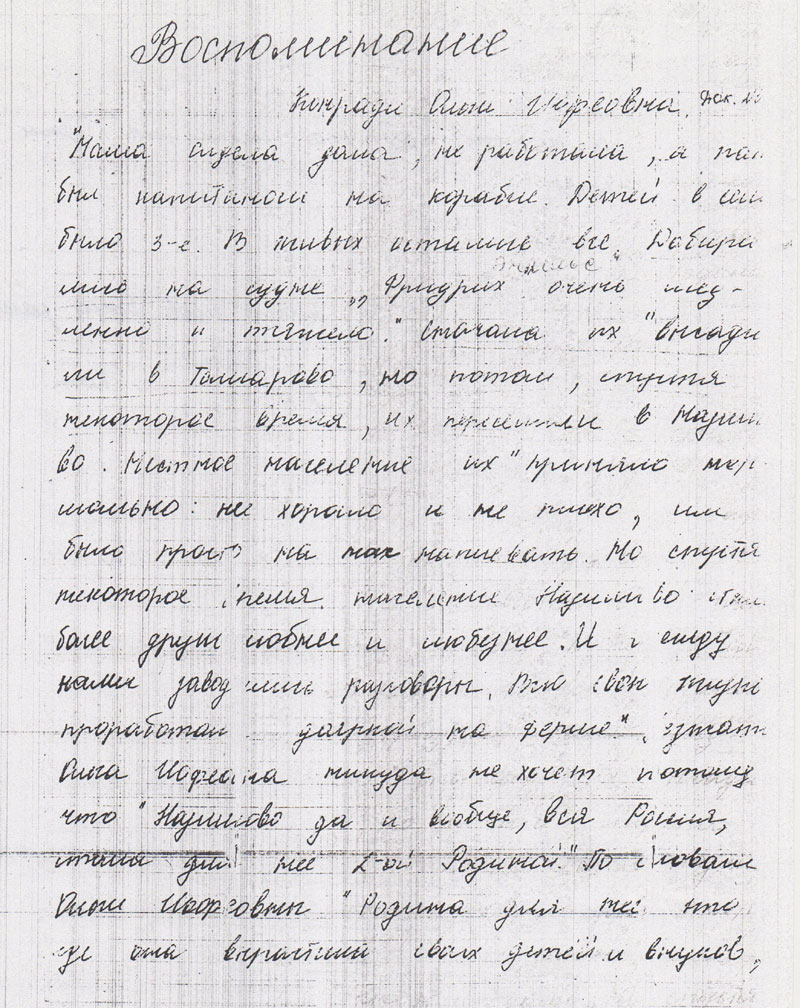 Воспоминание
Конради Ольги Иофеовны. Док. №
"Мама сидела дома, не работала, а пап
был капитаном на корабле. Детей в сем
было 3-е. В живых остались все. Добира
лись на судне "Фридрих Энгельс" очень мед-
ленно и тяжело." Сначала их "высади
ли в Токарово, но потом, спустя
некоторое время, их переселили в Назим
во. Местное население их "приняло нор
мально: не хорошо и не плохо, им
было просто на нас наплевать. Но спустя
некоторое время население Назимово
более дружелюбнее и любезнее. И с
нами заводились разговоры. Всю свою жизнь
проработала дояркой на ферме".
Ольга Иофеовна никуда не хочет потому
что "Назимово да и вообще, вся Россия,
стала для нее 2-ой Родиной." По словам
Ольги Иофеовны "Родина для нее это
где она вырастила своих детей и внуков,